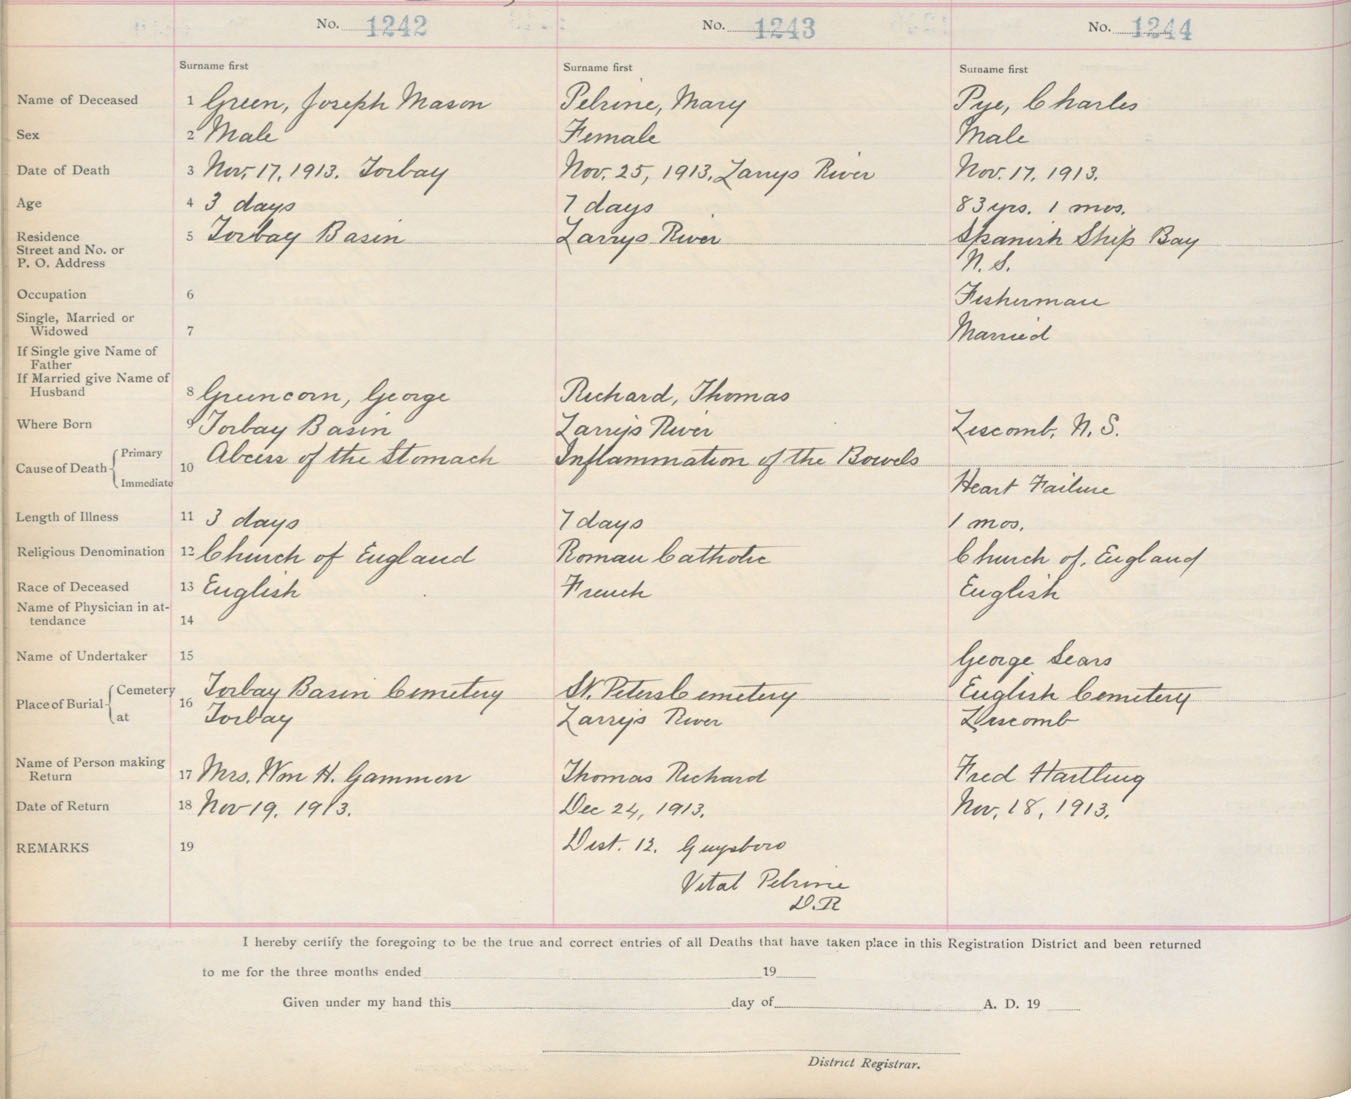 No. 1242 No. 1243 No. 1244
Surname first Surname first Surname first
Name of Deceased 1 Green, Joseph Mason Pelrine, Mary Pye, Charles
Sex 2 Male Female Male
Date of Death 3 Nov, 17, 1913. Torbay Nov. 25, 1913, Larrys River Nov. 17, 1913.
Age 4 3 days 7 days 83 yrs. 1 mos.
Residence 5 Torbay Basin Larrys River Spanish Ship Bay
Street and No. or
P. O. Address N. S.
Occupation 6 Fisherman
Single, Married or
Widowed 7 Married
If Single give Name of
Father
If Married give Name of
Husband 8 Greencorn, George Richard, Thomas
Where Born 9 Torbay Basin Larry's River Liscomb, N. S.
Cause of Death Primary 10 Abcess of the Stomach Inflammation of the Bowels
Immediate Heart Failure
Length of Illness 11 3 days 7 days 1 mos.
Religious Denomination 12 Church of England Roman Catholic Church of. England
Race of Deceased 13 English French English
Name of Physician in at-
tendance 14
Name of Undertaker 15 George Sears
Place of Burial Cemetery 16 Torbay Basin Cemetery St. Peters Cemetery English Cemetery
at Torbay Larry's River Liscomb
Name of Person making
Return 17 Mrs. Wm H. Gammon Thomas Richard Fred Hartling
Date of Return 18 Nov 19, 1913. Dec 24, 1913. Nov, 18, 1913,
REMARKS 19 Dist. 12. Guysboro
Vital Pelrine
D.R
I hereby certify the foregoing to be the true and correct entries of all Deaths that have taken place in this Registration District and been returned
to me for the three months ended 19
Given under my hand this day of A. D. 19
District Registrar.